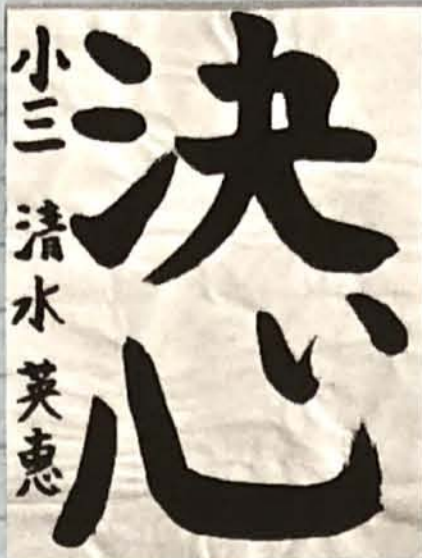 決心
小三 清水 英恵